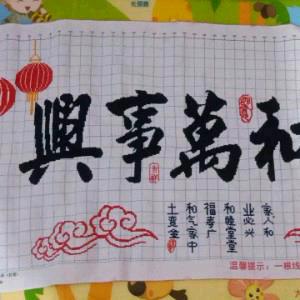 和萬事興
家人和
业必兴
和睦堂堂
福寿广
和气家中
土变金
温馨提示：一根线